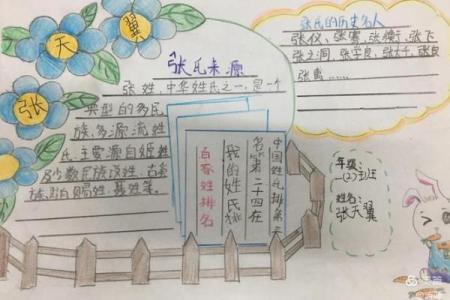 天
翼
张
张氏来源
张姓,中华姓氏之一,是一个
典型的多民
族、多源流姓
氏,主要源自姬姓
族
赐姓、聂姓等。
张氏的历史名人
张仪、张骞、张衡、张飞
张之洞、张学良、张大千、张良
张嵩……
中国姓氏排第三
名,第二十四在
我的姓氏状
百家姓排名
年级:
一(25)班
姓名:
张天翼